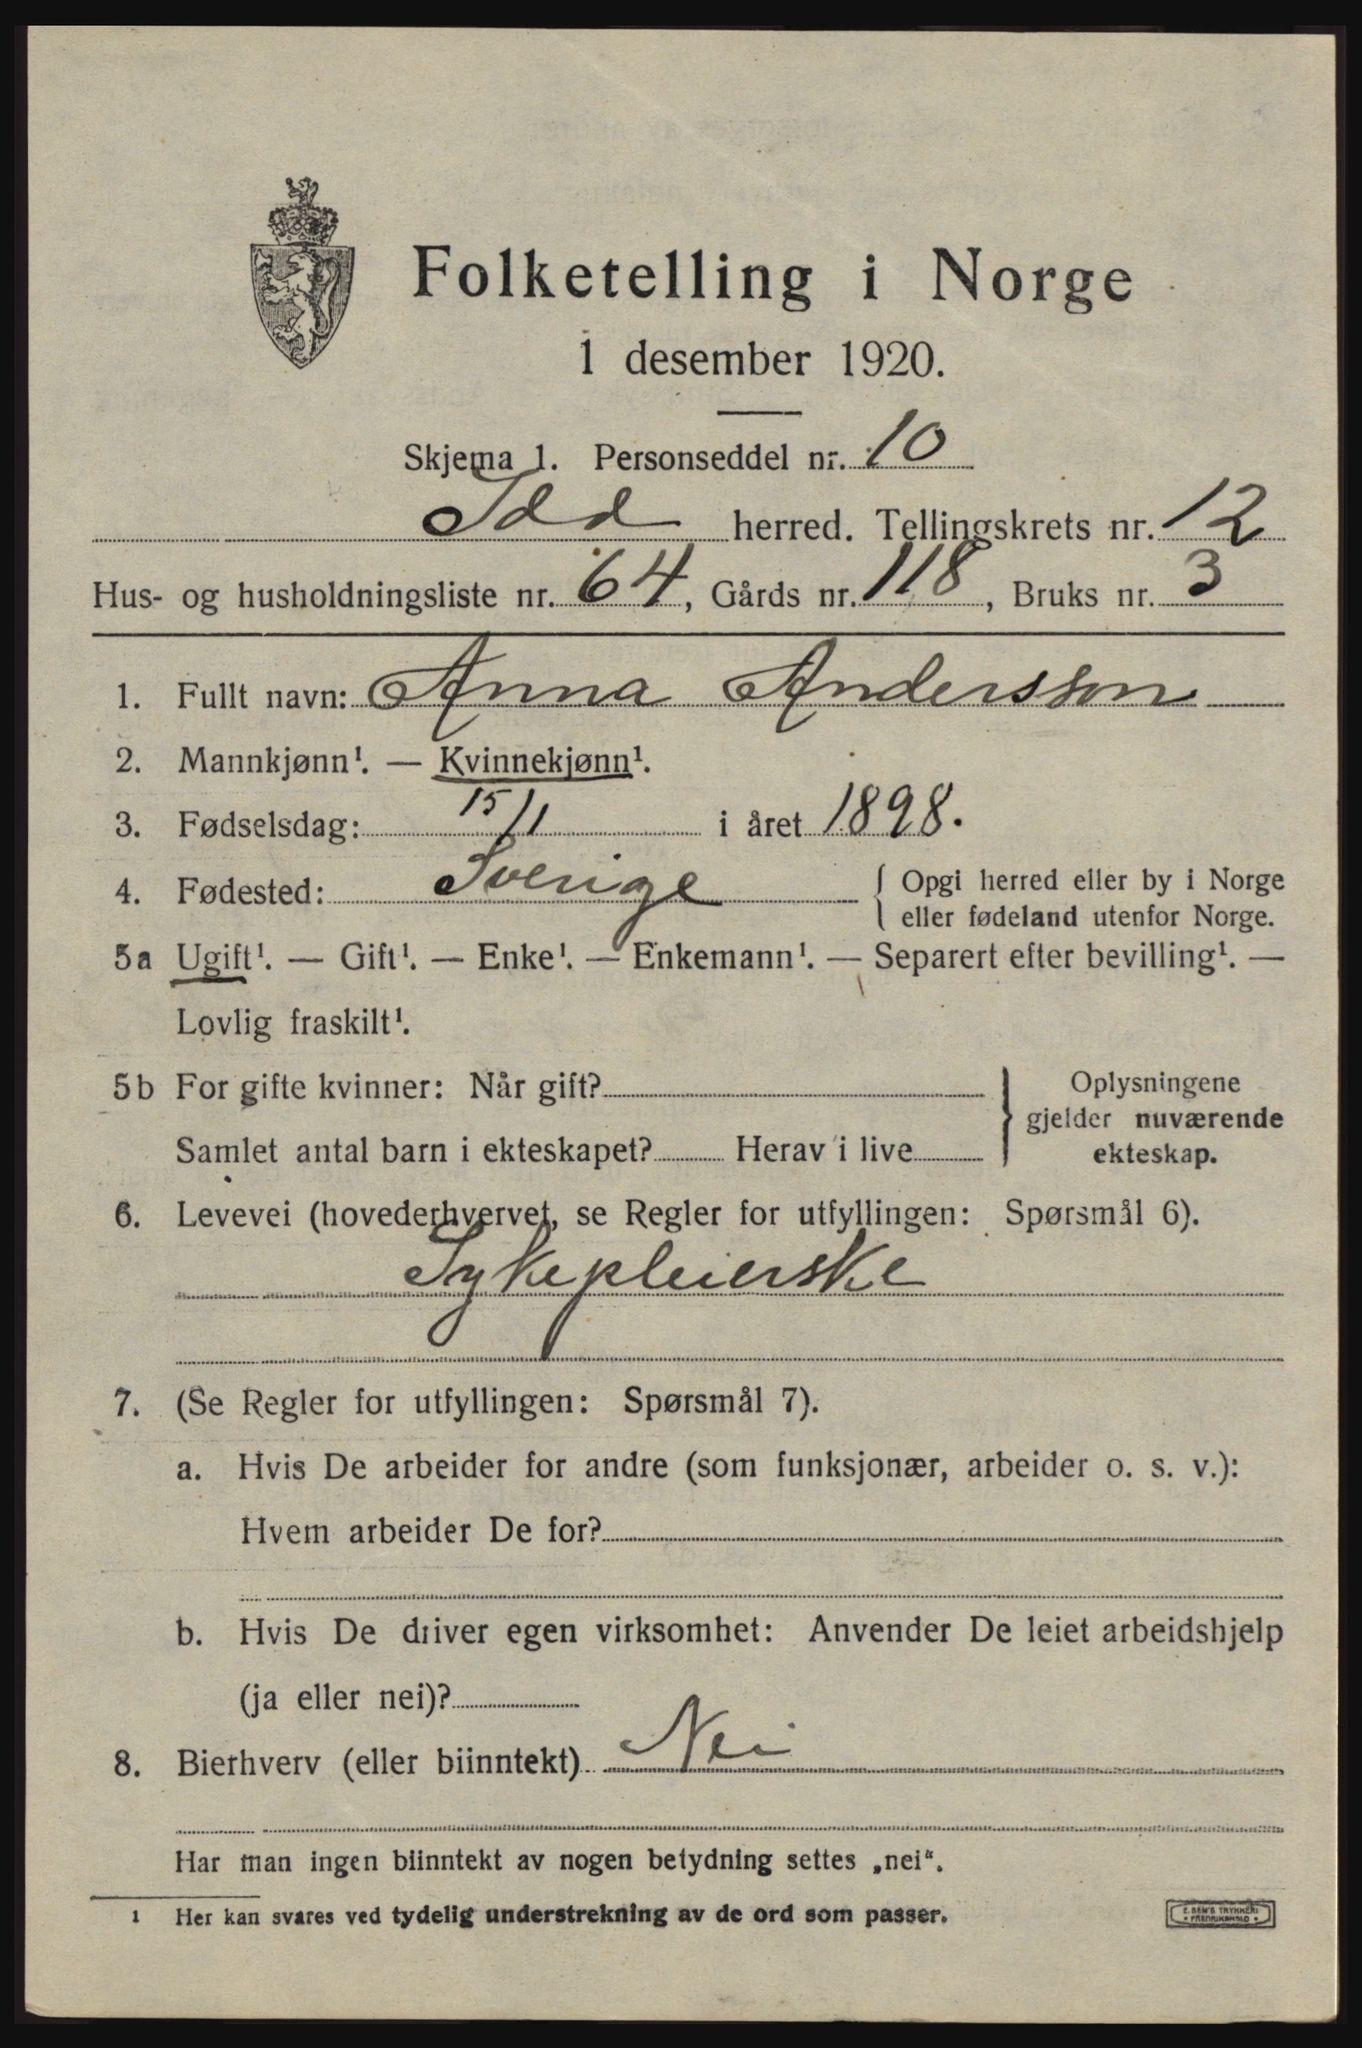 Folketelling i Norge
1 desember 1920.
Skjema 1. Personseddel nr. 10
Idd herred. Tellingskrets nr. 12
Hus- og husholdningsliste nr. 64, Gårds nr. 118, Bruks nr. 3
1. Fullt navn: Anna Andersson
2. Mannkjønn¹. — Kvinnekjønn¹.
3. Fødselsdag: 15/1 i året 1898.
4. Fødested: Sverige { Opgi herred eller by i Norge
eller fødeland utenfor Norge.
5a Ugift¹. — Gift¹. — Enke¹. — Enkemann¹. — Separert efter bevilling¹. —
Lovlig fraskilt¹.
5b For gifte kvinner: Når gift? } Oplysningene
gjelder nuværende
Samlet antal barn i ekteskapet? Herav i live ekteskap.
6. Levevei (hovederhvervet, se Regler for utfyllingen: Spørsmål 6).
Sykepleierske
7. (Se Regler for utfyllingen: Spørsmål 7).
a. Hvis De arbeider for andre (som funksjonær, arbeider o. s. v.):
Hvem arbeider De for?
b. Hvis De driver egen virksomhet: Anvender De leiet arbeidshjelp
(ja eller nei)?
8. Bierhverv (eller biinntekt) Nei
Har man ingen biinntekt av nogen betydning settes „nei“.
¹ Her kan svares ved tydelig understrekning av de ord som passer.
E. SEM'S TRYKKERI
• FREDRIKSHALD •